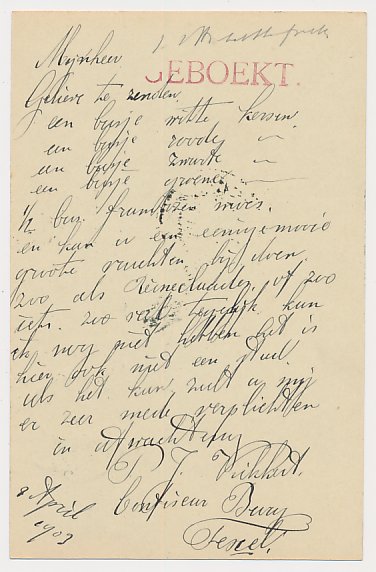 Mijnheer
GEBOEKT.
Gelieve te zenden
een busje witte kersen
een busje roode —
een busje zwarte —
een busje groene —
1/2 bus frambozen
en kan u een eenige mooie
groote vruchten bij doen
zoo als Reineclauden of zoo
iets. zoo veel kan
ik nog niet hebben het is
hier ook niet een stad.
als het kan zult u mij
er zeer mede verplichten
in afwachting
P. J.
Confiseur Burg
Texel.
8 April
1903